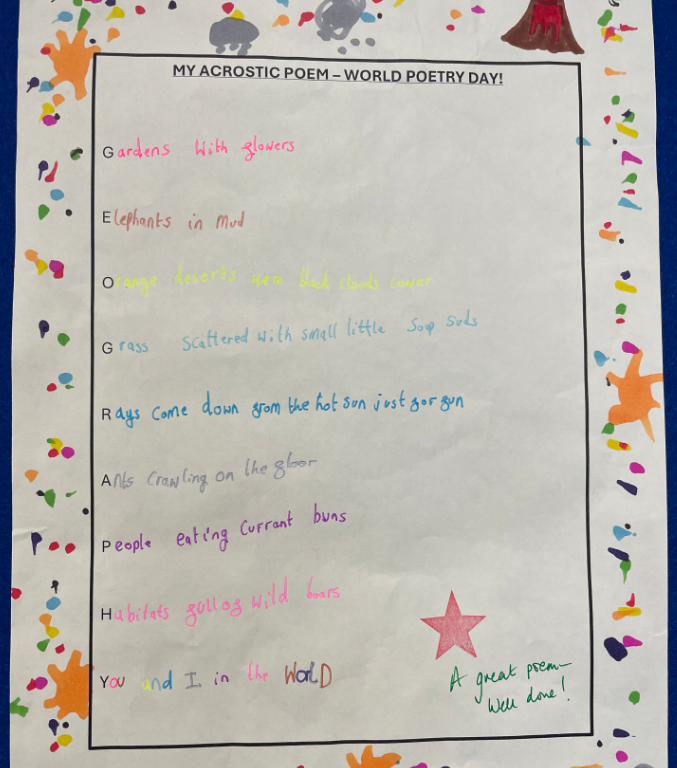 MY ACROSTIC POEM – WORLD POETRY DAY!
Gardens With flowers
Elephants in mud
Orange deserts were black clouds cover
Grass Scattered with small little Soap Suds
Rays come down from the hot sun just for fun
Ants Crawling on the floor
People eating Currant buns
Habitats full of wild boars
You and I in the WorlD
A great poem–
Well done!